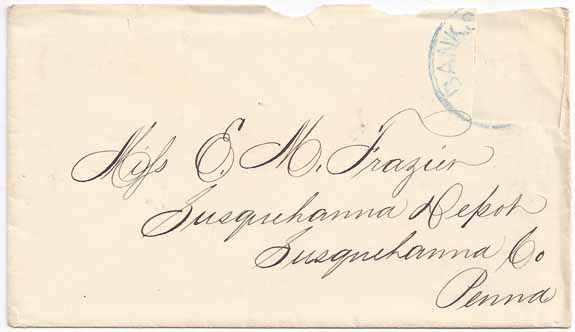 BANK
Miss E. M. Frazier
Susquehanna Depot
Susquehanna Co
Penna